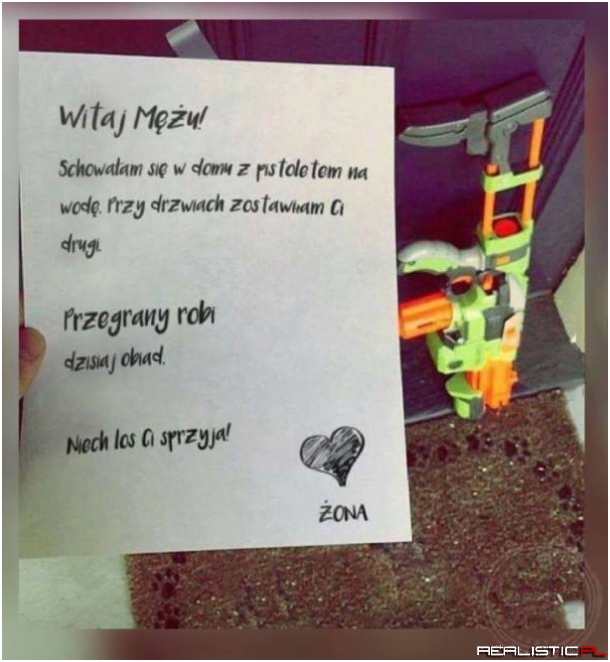 Witaj Mężu!
Schowałam się w domu z pistoletem na
wodę. Przy drzwiach zostawiłam Ci
drugi.
Przegrany robi
dzisiaj obiad.
Niech los Ci sprzyja!
ŻONA
REALISTIC.PL